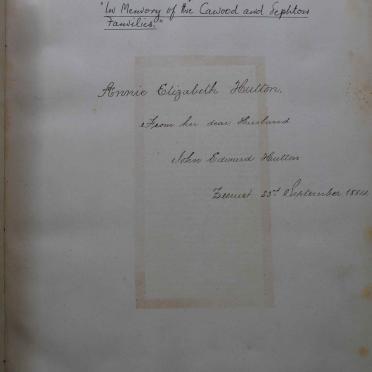 "In Memory of the Cawood and Sephton
Families."
Annie Elizabeth Hutton.
From her dear Husband
John Edward Hutton
September